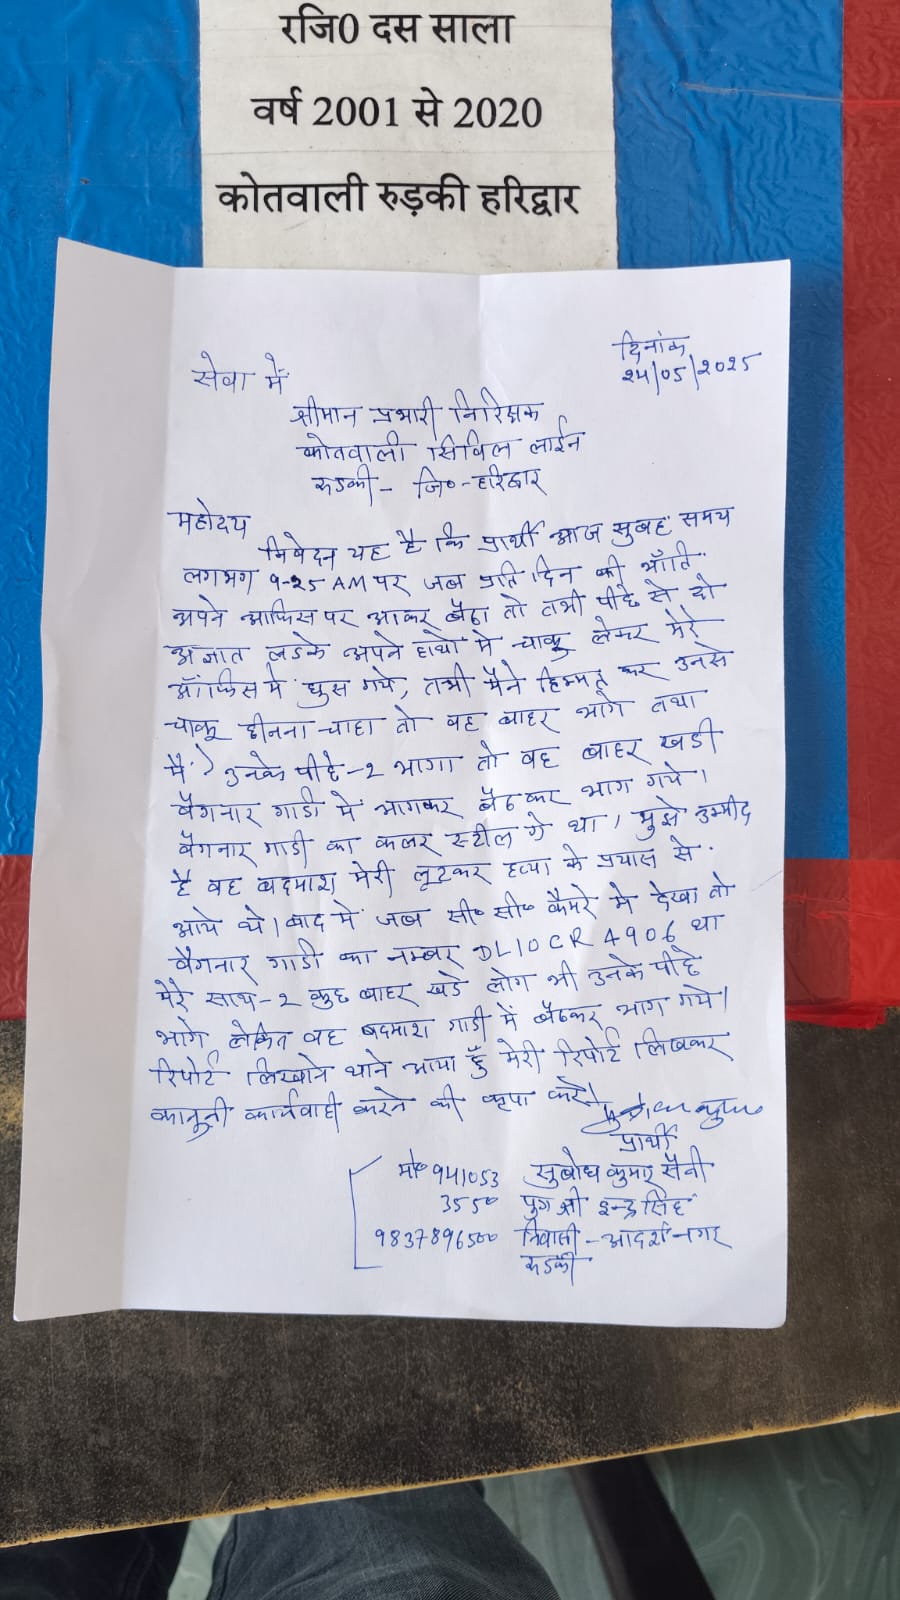 रजि0 दस साला
वर्ष 2001 से 2020
कोतवाली रुड़की हरिद्वार
दिनांक
24/05/2025
सेवा में
श्रीमान प्रभारी निरिक्षक
कोतवाली सिविल लाईन
रुडकी - जि०-हरिद्वार
महोदय
निवेदन यह है कि प्रार्थी आज सुबह समय
लगभग 9-25 AM पर जब प्रति दिन की भाँति
अपने आफिस पर आकर बैठा तो तभी पीछे से दो
अज्ञात लडके अपने हाथो मे चाकू लेकर मेरे
ऑफिस मे घुस गये, तभी मैने हिम्मत कर उनसे
चाकू छीनना चाहा तो वह बाहर भागे तथा
मैं उनके पीछे-2 भागा तो वह बाहर खडी
वैगनार गाडी में भागकर बैठ कर भाग गये।
वैगनार गाडी का कलर स्टील ग्रे था। मुझे उम्मीद
है वह बदमाश मेरी लूटकर हत्या के प्रयास से
आये थे। बाद में जब सी० सी० कैमरे मे देखा तो
वैगनार गाडी का नम्बर DL10CR 4906 था
मेरे साथ-2 कुछ बाहर खडे लोग भी उनके पीछे
भागे लेकिन वह बदमाश गाडी में बैठकर भाग गये।
रिपोर्ट लिखाने थाने आया हूँ मेरी रिपोर्ट लिखकर
कानूनी कार्यवाही करने की कृपा करे।
प्रार्थी
मो० 941053 सुबोध कुमार सैनी
3550 पुत्र श्री इन्द्र सिंह
9837896500 निवासी - आदर्श नगर
रुडकी